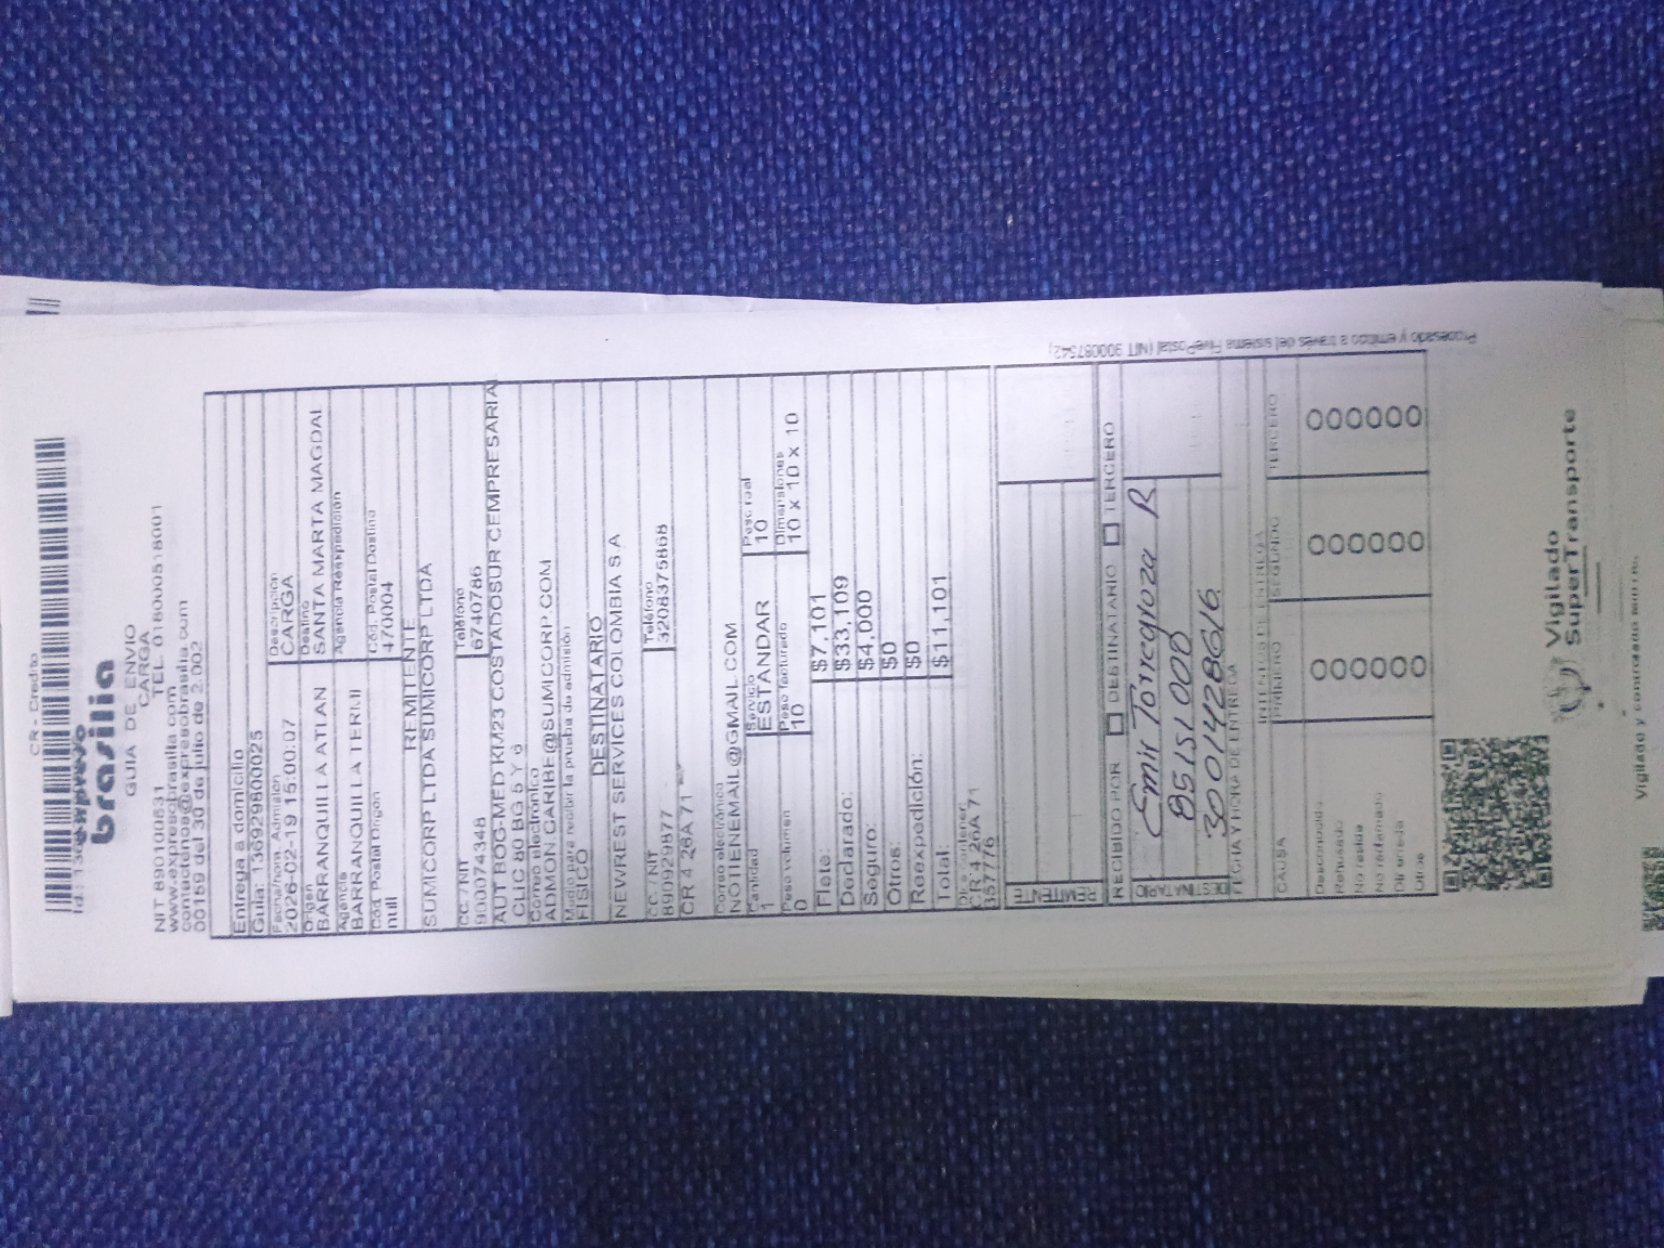 CR - Credito
expreso
brasilia
GUIA DE ENVIO
CARGA
NIT 890100531 TEL. 018000518001
www.expresobrasilia.com
contactenos@expresobrasilia.com
00159 del 30 de julio de 2.002
Entrega a domicilio
Guia: 136929800025
Fecha/hora Admisión Descripción
2026-02-19 15:00:07 CARGA
Origen Destino
BARRANQUILLA ATLAN SANTA MARTA MAGDAL
Agencia Agencia Reexpedición
BARRANQUILLA TERMI
Cód. Postal Origen Cód. Postal Destino
null 470004
REMITENTE
SUMICORP LTDA SUMICORP LTDA
CC / NIT Teléfono
900074348 6740786
AUT BOG-MED KM23 COSTADOSUR CEMPRESARIA
CLIC 80 BG 5 Y 6
Correo electrónico
ADMON.CARIBE@SUMICORP.COM
Medio para recibir la prueba de admisión
FISICO
DESTINATARIO
NEWREST SERVICES COLOMBIA S.A
CC / NIT Teléfono
890929877 3208375868
CR 4 26A 71
Correo electrónico
NOTIENEMAIL@GMAIL.COM
Cantidad Servicio Peso real
1 ESTANDAR 10
Peso volumen Peso facturado Dimensiones
0 10 10 x 10 x 10
Flete: $7,101
Declarado: $33,109
Seguro: $4,000
Otros: $0
Reexpedición: $0
Total: $11,101
Dice contener
CR 4 26A 71
357776
REMITENTE
RECIBIDO POR DESTINATARIO TERCERO
DESTINATARIO
Emir Torregroza R
85151000
3001428616
FECHA Y HORA DE ENTREGA
INTENTOS DE ENTREGA
CAUSA PRIMERO SEGUNDO TERCERO
Desconocido
Rehusado
No reside
No reclamado
Dir errada
Otros
Procesado y emitido a través del sistema FivePostal (NIT 900087542)
Vigilado
SuperTransporte